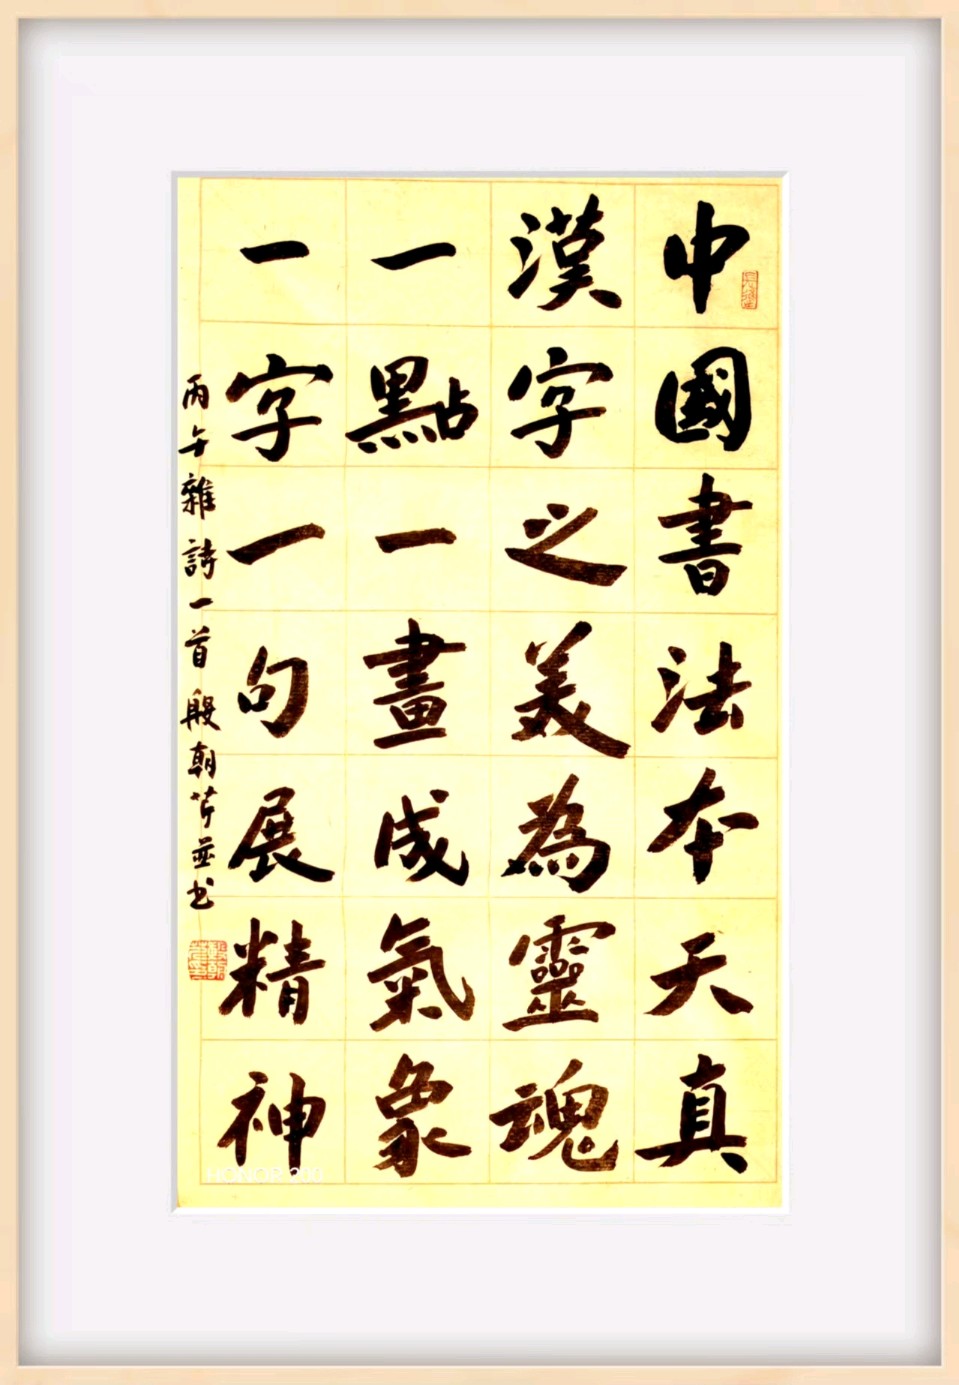 中國書法本天真
漢字之美為靈魂
一點一畫成氣象
一字一句展精神
丙午雜詩一首殷朝芹並书
HONOR 200